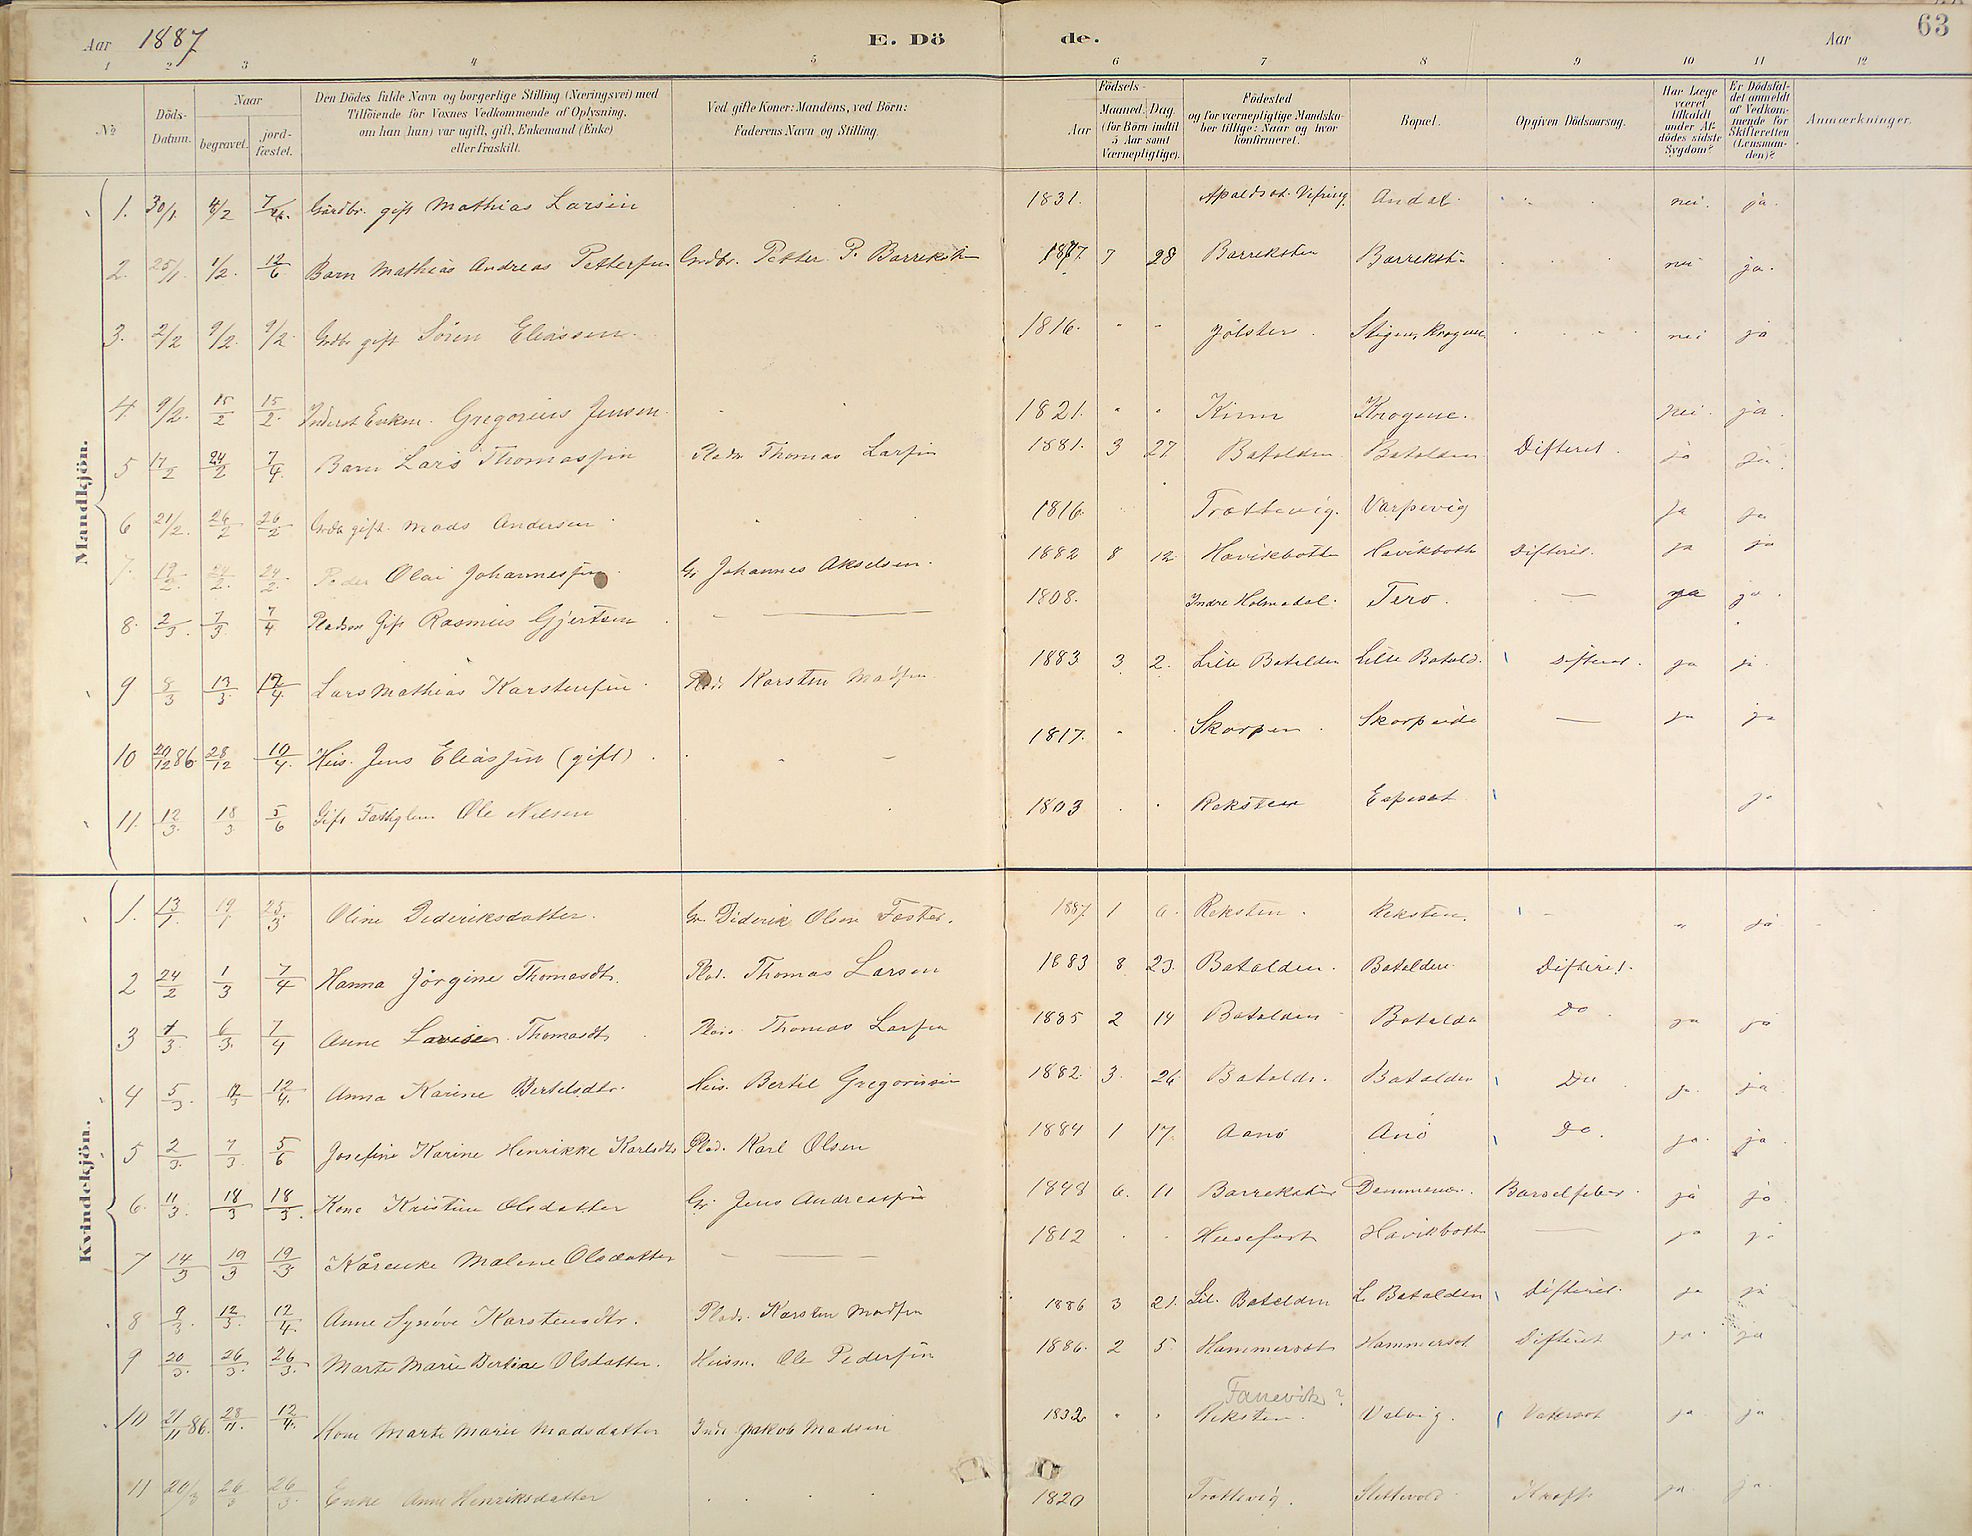 63
Aar 1887 E. Dö de. Aar
1 2 3 4 5 6 7 8 9 10 11 12
No
Döds-Datum.
Naar
begravet.
jord-fæstet.
Den Dödes fulde Navn og borgerlige Stilling (Næringsvei) med
Tilföiende for Voxnes Vedkommende af Oplysning,
om han (hun) var ugift, gift, Enkemand (Enke)
eller fraskilt.
Ved gifte Koner: Mandens, ved Börn:
Faderens Navn og Stilling.
Födsels-
Aar
Maaned. Dag.
(for Börn indtil
5 Aar samt
Værnepligtige).
Födested
og for værnepligtige Mandska-
ber tillige: Naar og hvor
konfirmeret.
Bopæl.
Opgiven Dödsaarsag.
Har Læge
været
tilkaldt
under Af-
dödes sidste
Sygdom?
Er Dödsfal-
det anmeldt
af Vedkom-
mende for
Skifteretten
(Lensman-
den)?
Anmærkninger.
Mandkjön.
1. 30/1 4/2 Gårdbr. gift Mathias Larsen 1831. Andal nei. ja.
2. 25/1 1/2. 12/6 Barn Mathias Andreas Pettersen Grdbr. Petter P. Barreksten 7 28 Barreksten Barreksten nei ja.
3. 2/2 9/2 9/2 Grdbr gift Sören Eliassen. 1816. " " Jölster Stigen, Krogene nei ja
4. 9/2. 15/2 15/2. Inderst Enkem. Gregorius Jensen. 1821. " " Kinn Krogene. nei. ja.
5 17/2 24/2 7/4. Barn Lars Thomassen Pladsm Thomas Larsen 1881. 3 27 Batalden Batalden Difterit. ja ja.
6 21/2. 26/2 26/2 Grdbr gift. Mads Andersen 1816. Trættevig. Varpevig ja ja
7. 19/2. 24/2. 24/2. Peder Olai Johannessen. Gr. Johannes Akselsen. 1882 8 12 Havikbotn Havikbotn Difterit. ja ja
8. 2/3. 7/3. 7/4 Pladsm Gift Rasmus Gjertsen — 1808. Indre Holmedal. Tero. — ja ja.
9 8/3 13/3. 12/4 Lars Mathias Karstensen Plads. Karsten Madsen 1883 3 2. Lille Batalden Lille Batald. Difterit. ja ja.
10 20/12 86. 28/12 10/4. Hus. Jens Eliassen (gift) 1817. " Skorpen. Skorpeide — ja ja
11. 12/3. 18/3 5/6 Gift Fattiglem Ole Nilsen 1803 Reksten Espeset ja
Kvindekjön.
1. 13/1. 19/1 25/3 Oline Dideriksdatter. Gr. Diderik Olsen 1887 1 6. Reksten. Reksten. - " ja
2 24/2 1/3 7/4 Hanna Jörgine Thomasdtr. Plad. Thomas Larsen 1883 8 23. Batalden. Batalden Difterit.
3 4/3. 6/3. 7/4 Anne Lovise Thomasdtr Plads. Thomas Larsen 1885 2 14 Batalden Batalde Do. ja ja
4 5/3. 12/3 12/4. Anna Karine Bertelsdtr. Hus. Bertil Gregoriussen 1882. 3. 26 Batalde. Batalden Do ja. ja
5 2/3. 7/3. 5/6 Josefine Karine Henrikke Karlsdtr Plad. Karl Olsen 1884 1 17. Aanö Anö Do. ja. ja
6. 11/3. 18/3 18/3. Kone Kristine Olsdatter Gr. Jens Andreassen 1848 6. 11 Barreksten Barselfeber. ja ja
7 14/3 19/3 19/3 Kårenke Malene Olsdatter — 1812 Husefast Havikbotn — ja ja
8 9/3. 12/3. 12/4. Anne Synöve Karstensdtr. Plads. Karsten Madsen 1886 3 21. Lil. Batalden L. Batalden Difterit. ja ja
9 20/3. 26/3. 26/3. Marte Marie Bertine Olsdatter. Husm. Ole Pedersen 1886. 2 5. Hammerset Hammerset Difterit ja. ja
Fanevik?
10 21/11 86. 28/11. 12/4. Kone Marte Marie Madsdatter Ind. Jakob Madsen 1832 " Reksten. Valvig. Vatersot ja ja
11 20/3 26/3 26/3. Enke Anne Henriksdatter 1820 Trættevig. Kræft. ja. ja.